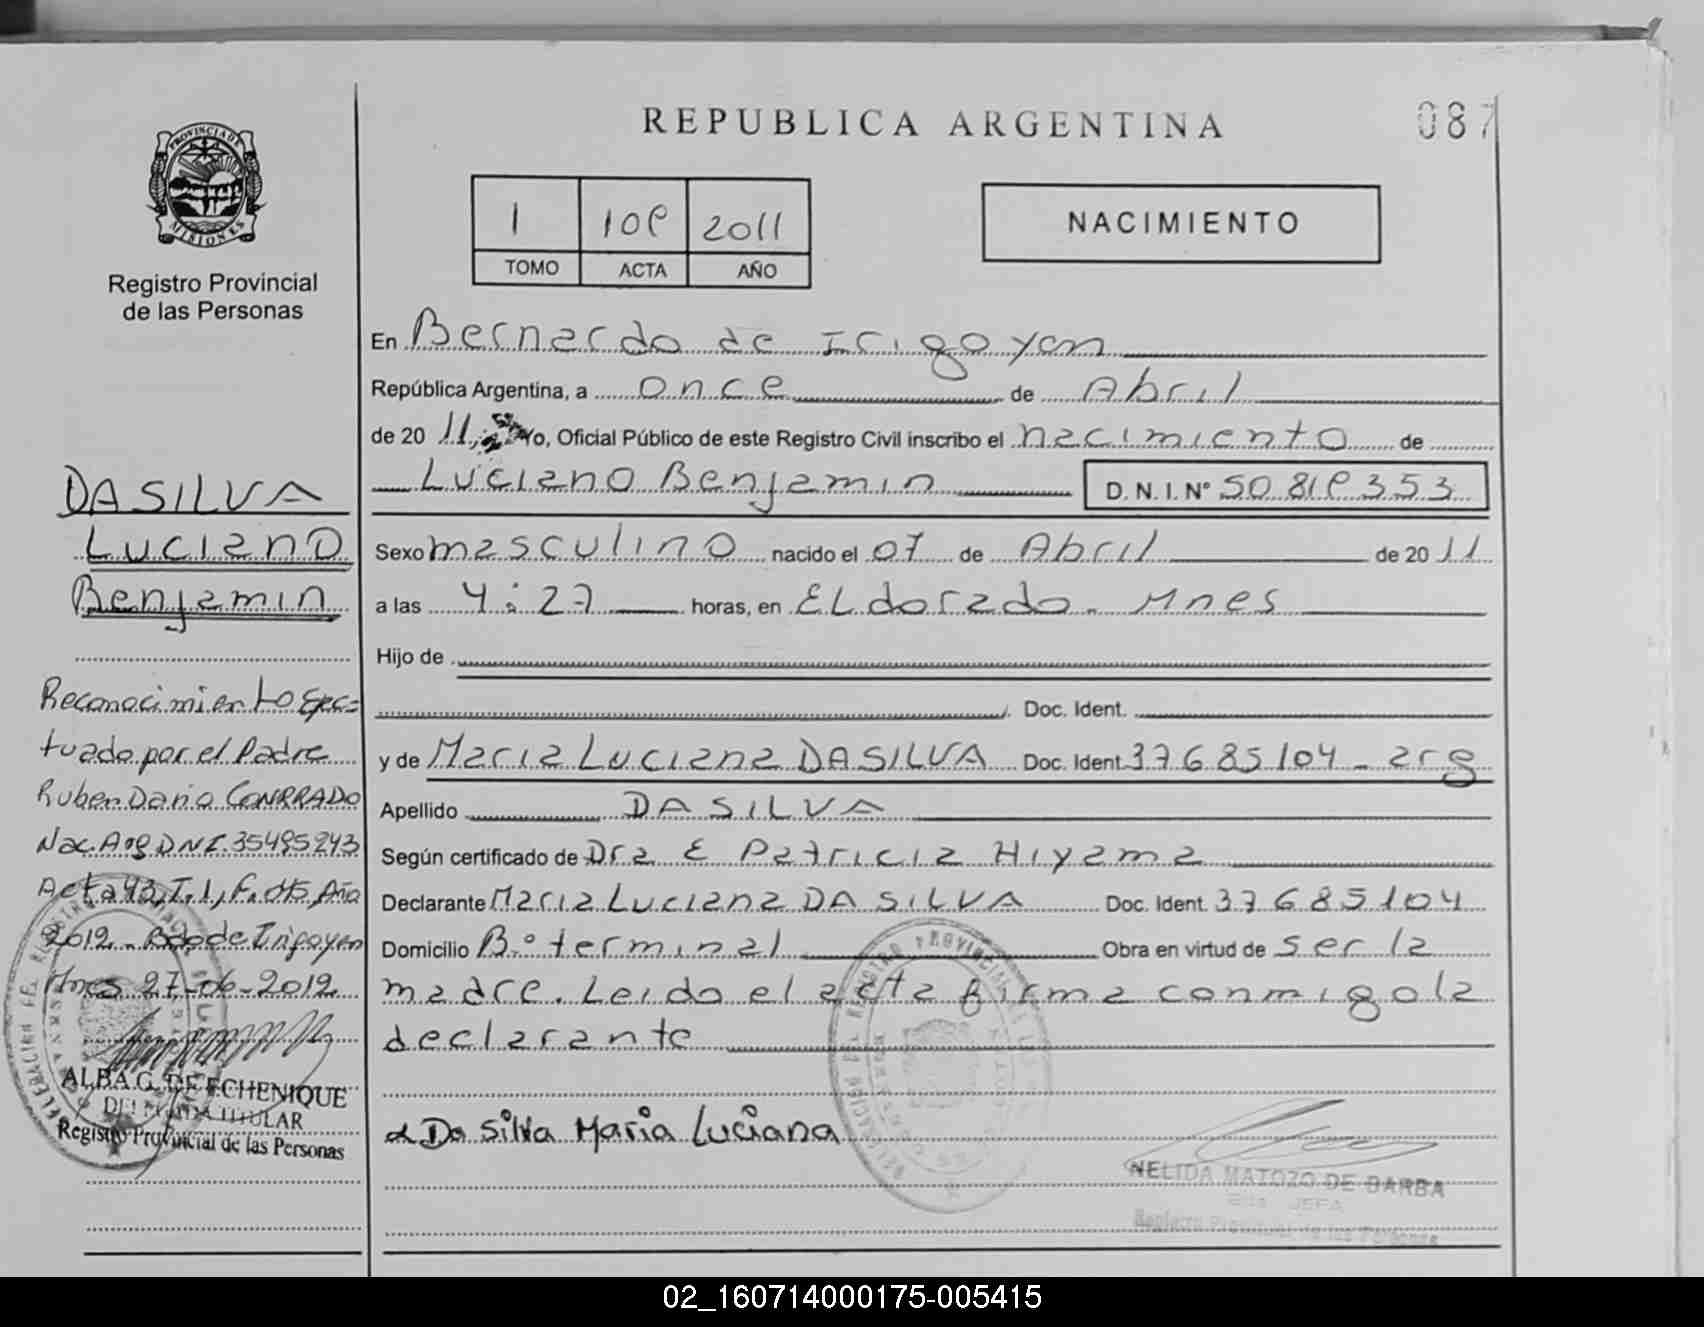 REPUBLICA ARGENTINA
087
PROVINCIA D
MISIONES
Registro Provincial
de las Personas
1 109 2011
TOMO ACTA AÑO
NACIMIENTO
En Bernardo de Irigoyen
República Argentina, a once de Abril
de 20 11, Yo, Oficial Público de este Registro Civil inscribo el nacimiento de
Luciano Benjamin D. N. I. N° 50 819 353
Sexo masculino nacido el 07 de Abril de 20 11
a las 4:27 horas, en ELdorado. Mnes
Hijo de
Doc. Ident.
y de Maria Luciana DASILVA Doc. Ident 37685104 - arg
Apellido DASILVA
Según certificado de Dra E Patricia Hiyama
Declarante Maria Luciana DA SILVA Doc. Ident. 37685104
Domicilio B° terminal Obra en virtud de ser la
madre. Leido el acta firma conmigo la
declarante
Da Silva Maria Luciana
NELIDA MATOZO DE BARBA
JEFA
Registro Provincial de las Personas
DASILVA
Luciano
Benjamin
Reconocimiento efec-
tuado por el Padre
Ruben Dario CONRRADO
Nac. Arg DNI. 35495243
Acta 43, T. 1, F. 045, Año
2012 - Bdo de Irigoyen
Mnes 27-06-2012
ALBA G. DE ECHENIQUE
DELEGADA TITULAR
Registro Provincial de las Personas
02_160714000175-005415